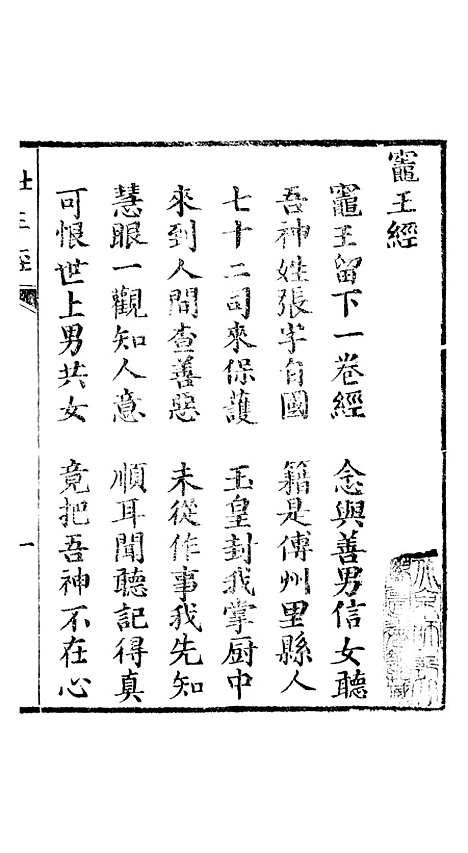 竈王經
竈王留下一卷經　念與善男信女聽
吾神姓張字自國　籍是傅州里縣人
七十二司來保護　玉皇封我掌厨中
來到人間查善惡　未從作事我先知
慧眼一觀知人意　順耳聞聽記得真
可恨世上男共女　竟把吾神不在心
一